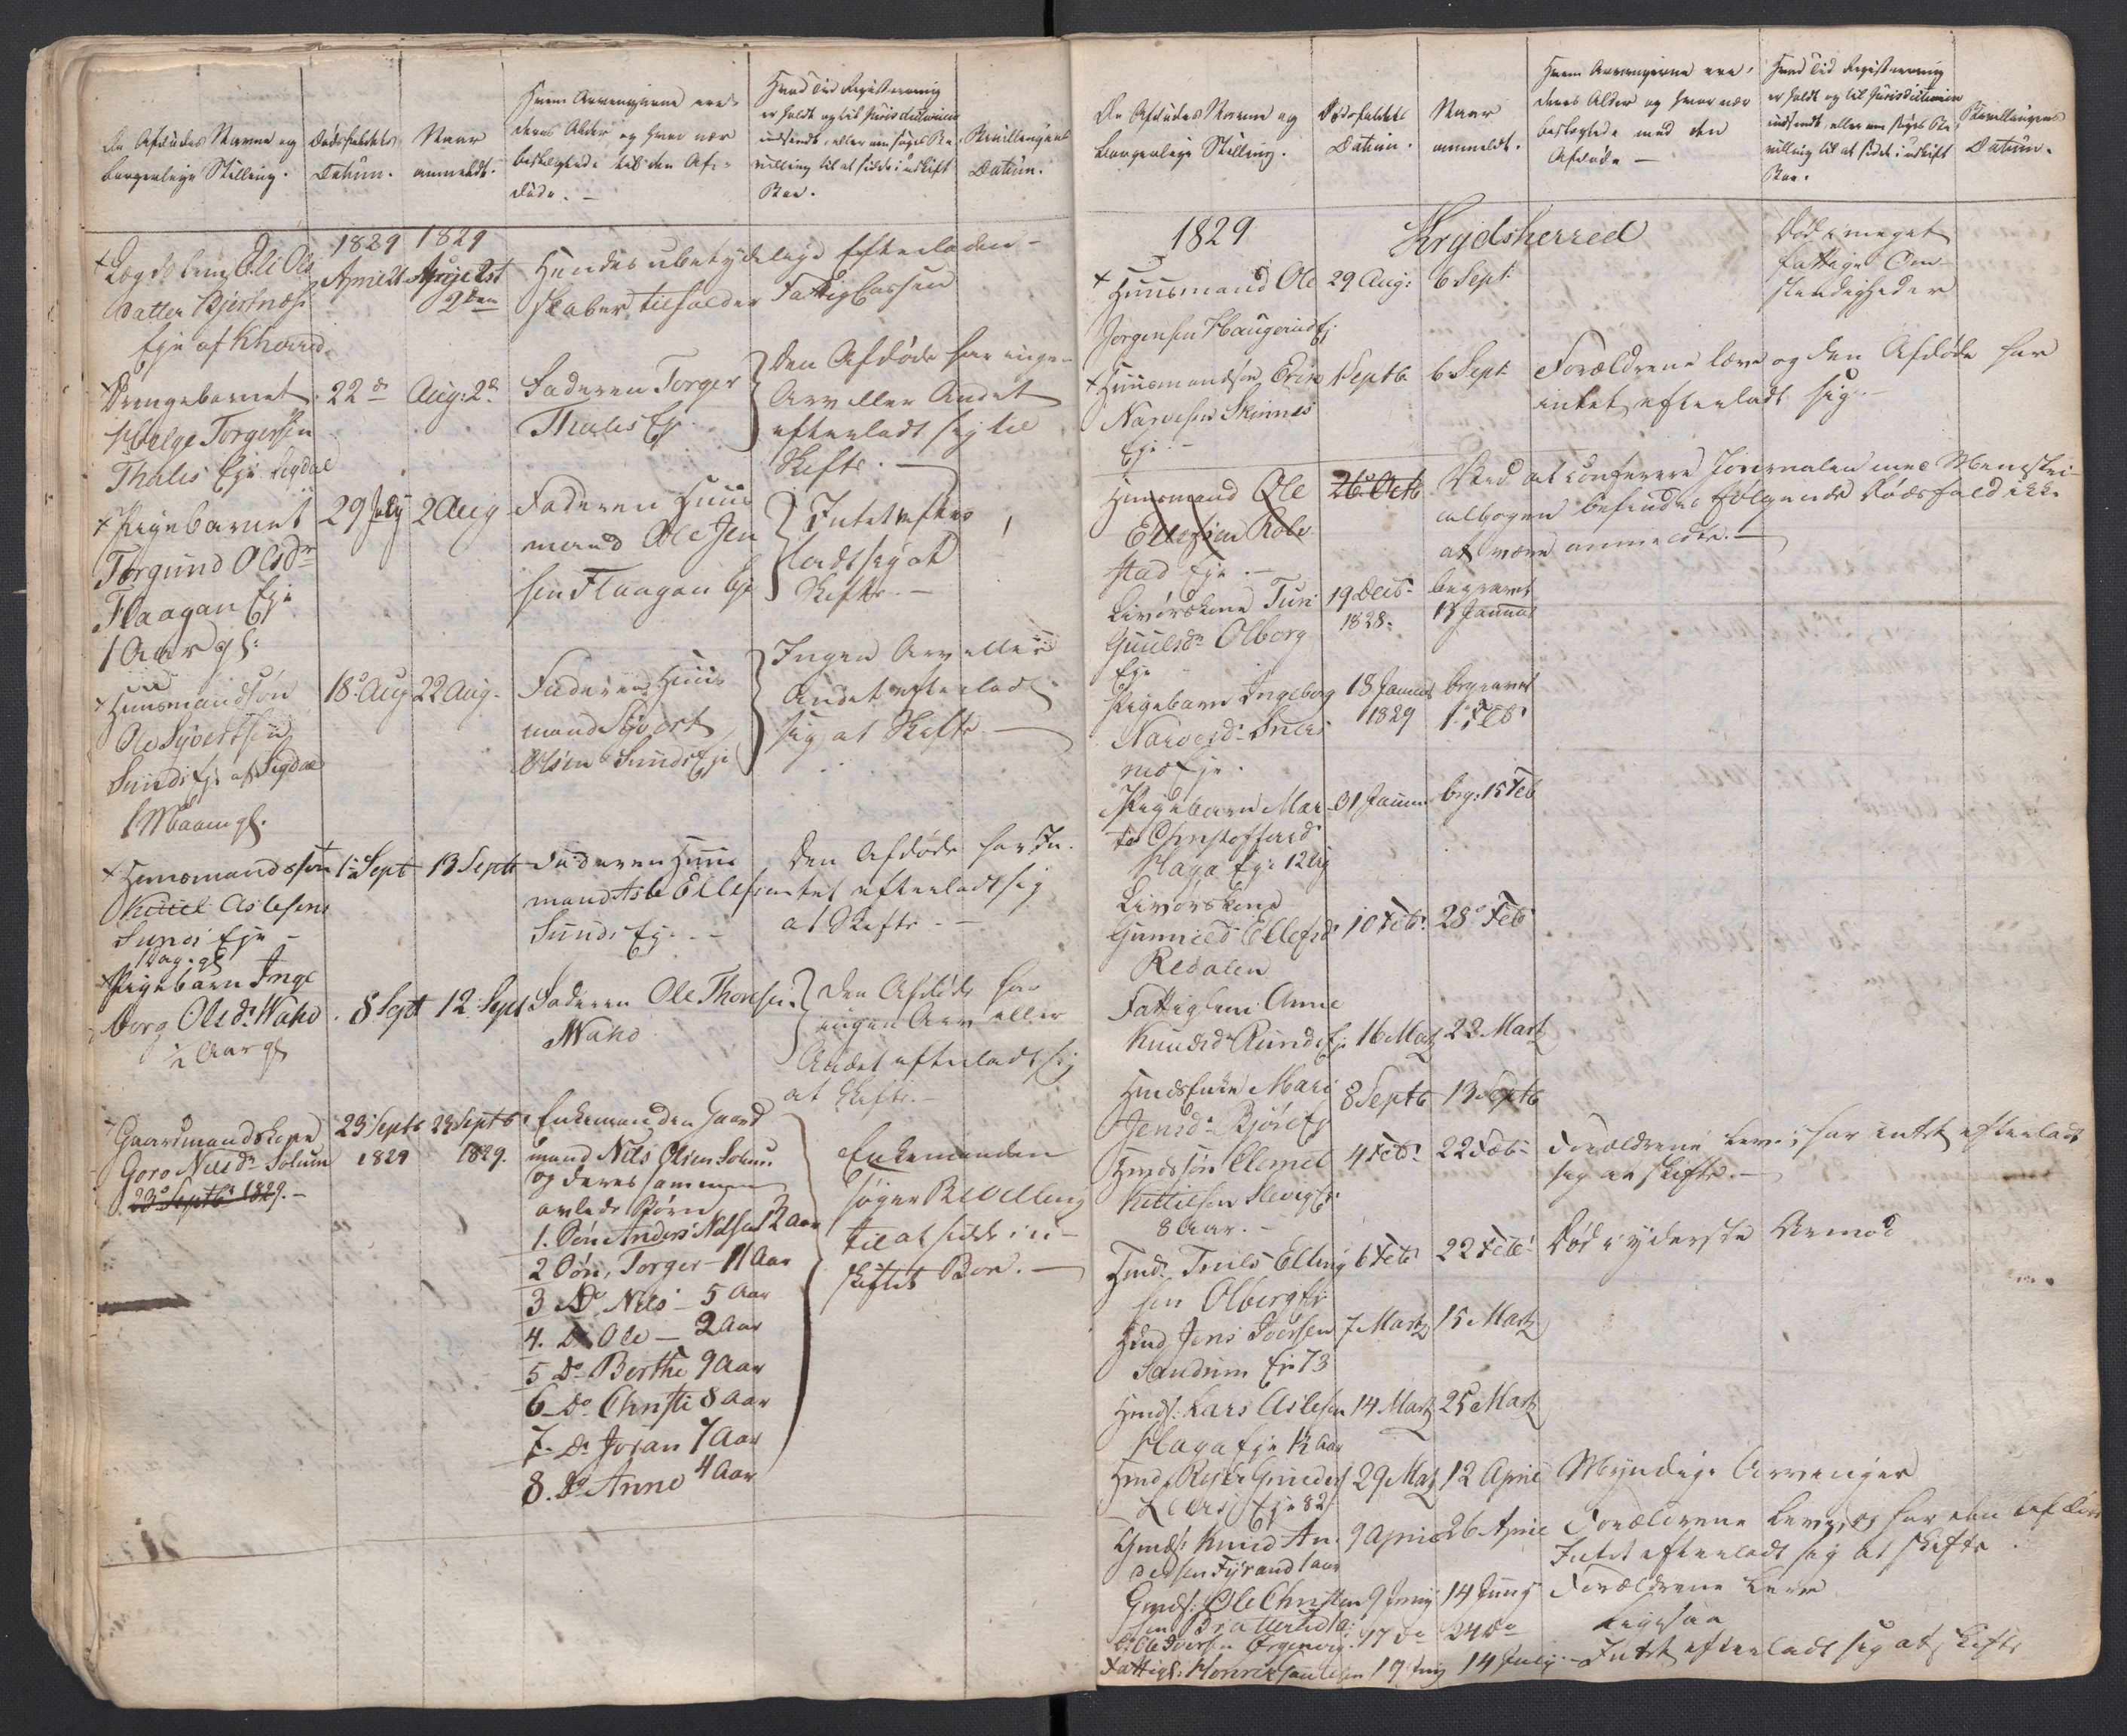 De Afdødes Navne og
borgerlige Stilling.
Dødsfaldets
Datum.
Naar
anmeldt.
Hvem Arvingerne ere
deres Alder og hvor nær
beslægtede til den Af-
døde. -
Hvad Tid Registrering
er holdt og til Jurisdictionen
indsendt, eller om søges Be-
villing til at sidde i uskift
Boe.
Bevillingens
Datum.
1829 1829
Olsdatter Bjertnæs
Eje af Kherred
April
2den
Hendes ubetydelige Efterladen-
skaber tilfalder Fattig Cassen
Drengebarnet
Helge Torgersen
Thules Eje Sigdal
22de Aug: 2d
Faderen Torger
Thules Ej
Den Afdøde har ingen
Arv eller Andet
efterladt sig til
Skifte. -
Pigebarnet
Torgund Olsdr
Flaagan Eje
1 Aar gl:
29 July 2 Aug
Faderen Huus
mand Ole Jen
sen Flaagan Eje
Intet efter
ladt sig at
Skifte. -
Huusmandsøn
Ole Syvertsen
Sunds Eje af Sigdal
1 Maan gl.
18 Aug 22 Aug.
Faderen Huus
mand Syvert
Olsen Sunds Eje
Ingen Arv eller
Andet efterladt
sig at Skifte. -
Huusmandssøn
Kittil Aslesen
Sunds Eje -
1 Dag gl
1 Sept 13 Sept
Faderen Huus
mand Asle Ellefsen
Sunds Eje. -
Den Afdøde har In-
tet efterladt sig
at Skifte. -
Pigebarn Inge
borg Olsdr Waho
1/2 Aar gl
8 Sept 12 Sept
Faderen Ole Thoresen
Waho
Den Afdøde har
ingen Arv eller
Andet efterladt sig
at Skifte. -
Gaardmandskone
Goro Nilsdr Solum
23 Septb 1829. -
23 Septb 23 Septb
1829 1829.
Enkemanden Gaard
mand Nils Olsen Solum
og deres sammen
avlede Børn
1. Søn Anders Nilsen 12 Aar
2 Søn, Torger - 11 Aar
3 Do Nils - 5 Aar
4. Do Ole - 2 Aar
5 Do Berthe 9 Aar
6 Do Christi 8 Aar
7. Do Joran 7 Aar
8. Do Anne 4 Aar
Enkemanden
søger Bevilling
til at sidde i u-
skiftet Boe. -
De Afdødes Navne og
borgerlige Stilling.
Dødsfaldets
Datum.
Naar
anmeldt.
Hvem Arvingerne ere,
deres Alder og hvor nær
beslægtede med den
Afdøde -
Hvad Tid Registrering
er holdt og til Jurisdictionen
indsendt, eller om søges Be-
villing til at sidde i uskift
Boe.
Bevillingens
Datum.
1829 Krydsherred
Huusmand Ole
Jørgensen Haugerud Ej
29 Aug: 6 Sept
Død i meget
fattige Om-
stændigheder
Huusmandsøn Even
Narvesen Skinnes
Eje. -
1 Septb 6 Sept
Forældrene leve og den Afdøde har
intet efterladt sig. -
Huusmand Ole
Ellefsen Role
stad Eje. -
26 Octb
Ved at conferere Journalen med Ministeri-
albogen befindes følgende Dødsfald ikke
at være anmeldte. -
Livørskone Turi
Guulsdr Olberg
Eje
19 Decb
1828.
begravet
Januar
Pigebarn Ingeborg
Narvesdr Sners
moe Eje.
18 Januar
1829
begravet
1 Feb
Pigebarn Mar
te Christoffersd
Haga Eje 12 Ug
31 Januar beg. 15 Feb
Livørskone
Gunnild Ellefsd
Redalen
10 Feb. 28 Feb
Fattiglem Anne
Knudsd Runds Ej
16 Mart 22 Mart
Huusenke Mari
Jensdr Bjøre Ej
8 Septb 13 Septb
Hmdssøn Clemet
Kittilsen Slevig Ej
8 Aar. -
4 Feb: 22 Feb:
Forældrene leve, har intet efterladt
sig at skifte. -
Hmd. Truls Elling
sen Olberg Ej
6 Feb 22 Feb
Død i yderste Armod
Hmd Jens Iversen
Sandum Eje 73
7 Mart 15 Mart
Hmds: Lars Aslesen
Haga Eje 12 Aar
14 Mart 25 Mart
Eje 82
29 Mart 12 April
Myndige Arvinger
Gmds: Knud An-
dersen Fyrand 1 Aar
9 April 26 April
Forældrene leve, og har den Afdøde
Intet efterladt sig at skifte
Gmds: Ole Christen
sen Bratterud
9 Juny 14 Juny
Forældrene leve
Ole Iversen Ørgenvig 17 Do 24 Do
Ligesaa
Fattigl: 14 July
Intet efterladt sig at skifte